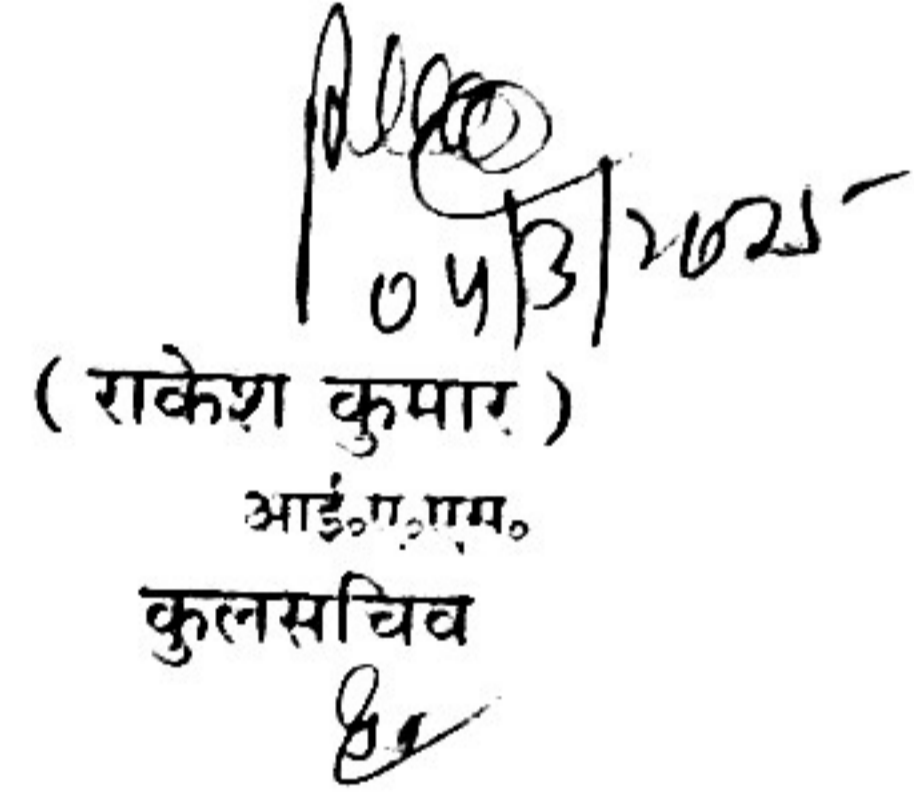 04/3/2025
( राकेश कुमार )
आई॰ए॰एस॰
कुलसचिव